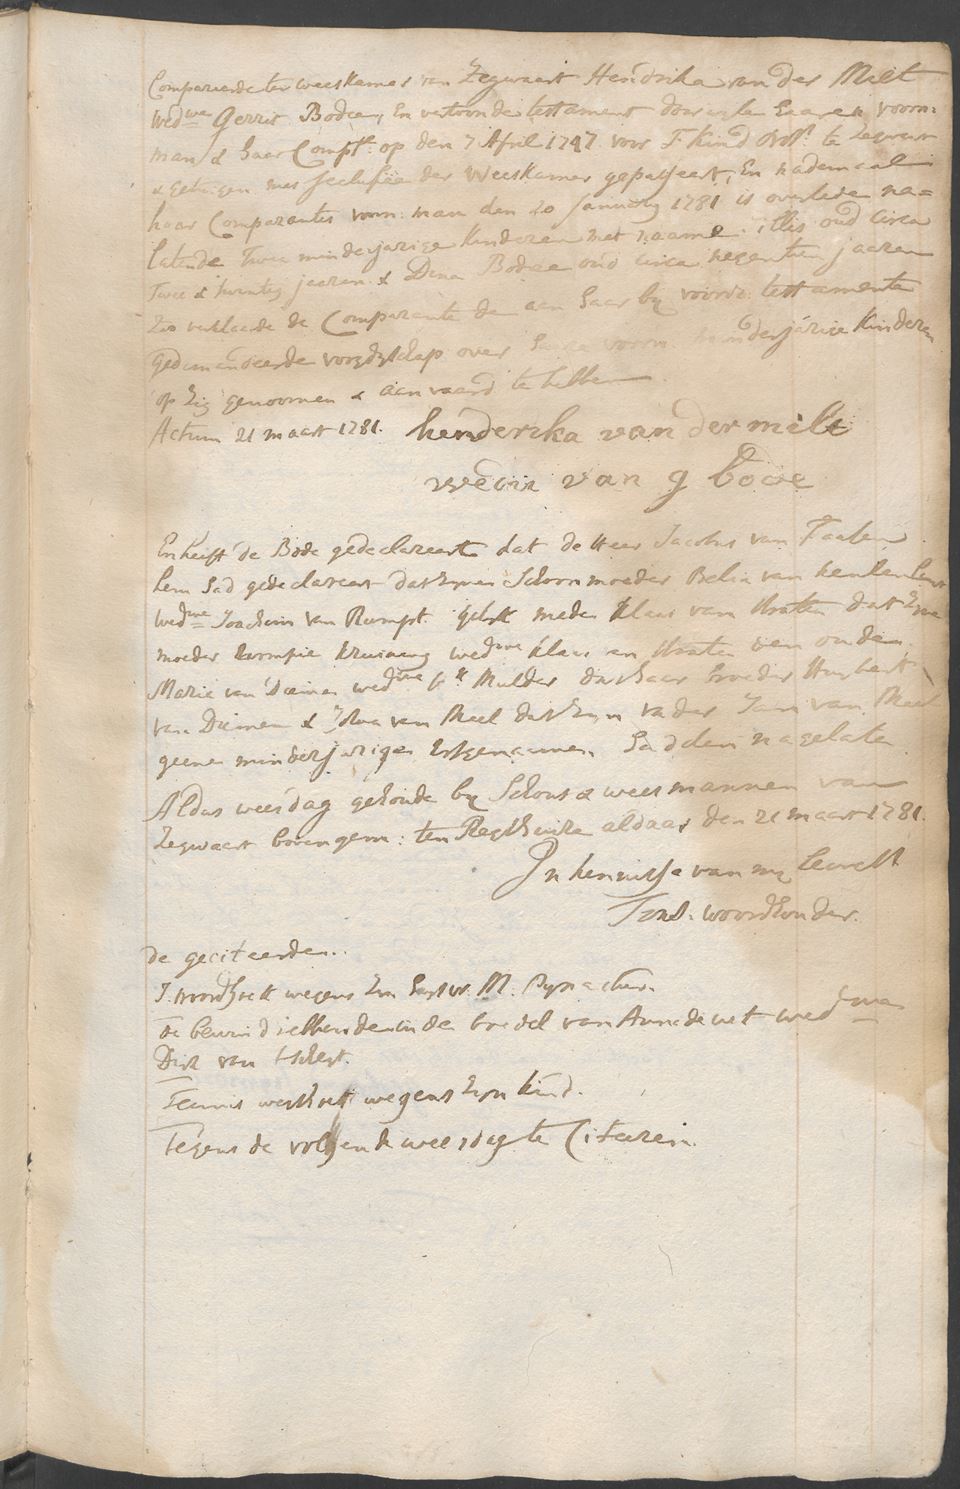 Compareerde ter weeskamer van Zegwaart Hendrika van der Melt
wedwe Gerrit Bodee, En vertoonde testament door wijlen haaren voorn:
man & haar Compte. op den 7 April 1747 voor F. Kind Nots. te Zegwaart
& getuigen met seclusie der Weeskamer gepasseert, En nademaal
haar Comparantes voorn: man den 20 January 1781 is overleden na=
latende Twee minderjarige Kinderen met naame. Illis oud circa
Twee & twintig jaaren & Dina Bodee oud circa negentien jaaren
Zoo verklaarde de Comparante de aan haar by voorn: testamente
gedemandeerde voogdyschap over haare voorn: minderjarige Kinderen
op Zig genoomen & aanvaard te hebben
Actum 21 maart 1781. henderika van der melt
weduw van g bode
En heeft de Bode gedeclareert dat de Heer Jacobus van Taalen
hem had gedeclareert dat Zynen Schoonmoeder Belia van
wedwe Joachim van Rumpt. gelyk mede Klaas van Straten dat Zyne
moeder Krompie Kruining wedwe Klaas van Straten van onden
Marie van Diemen wedwe Mulder dat haar broeder Huybert
van Diemen & van Meel dat Zyn vader Jan van Meel
geene minderjarige Erfgenaamen hadden nagelaten
Aldus weesdag gehoude by Schout & weesmannen van
Zegwaart bovengem: ten Regthuize aldaar den 21 maart 1781.
In kennisse van my
woordhouder.
de geciteerden..
wegens Zyn M. Pynacker.
de bewindhebbende in de boedel van Anna de wet wedwe
Dirk van
Teunis wegens Zyn kind.
Tegens de volgende weesdag te Citeeren.